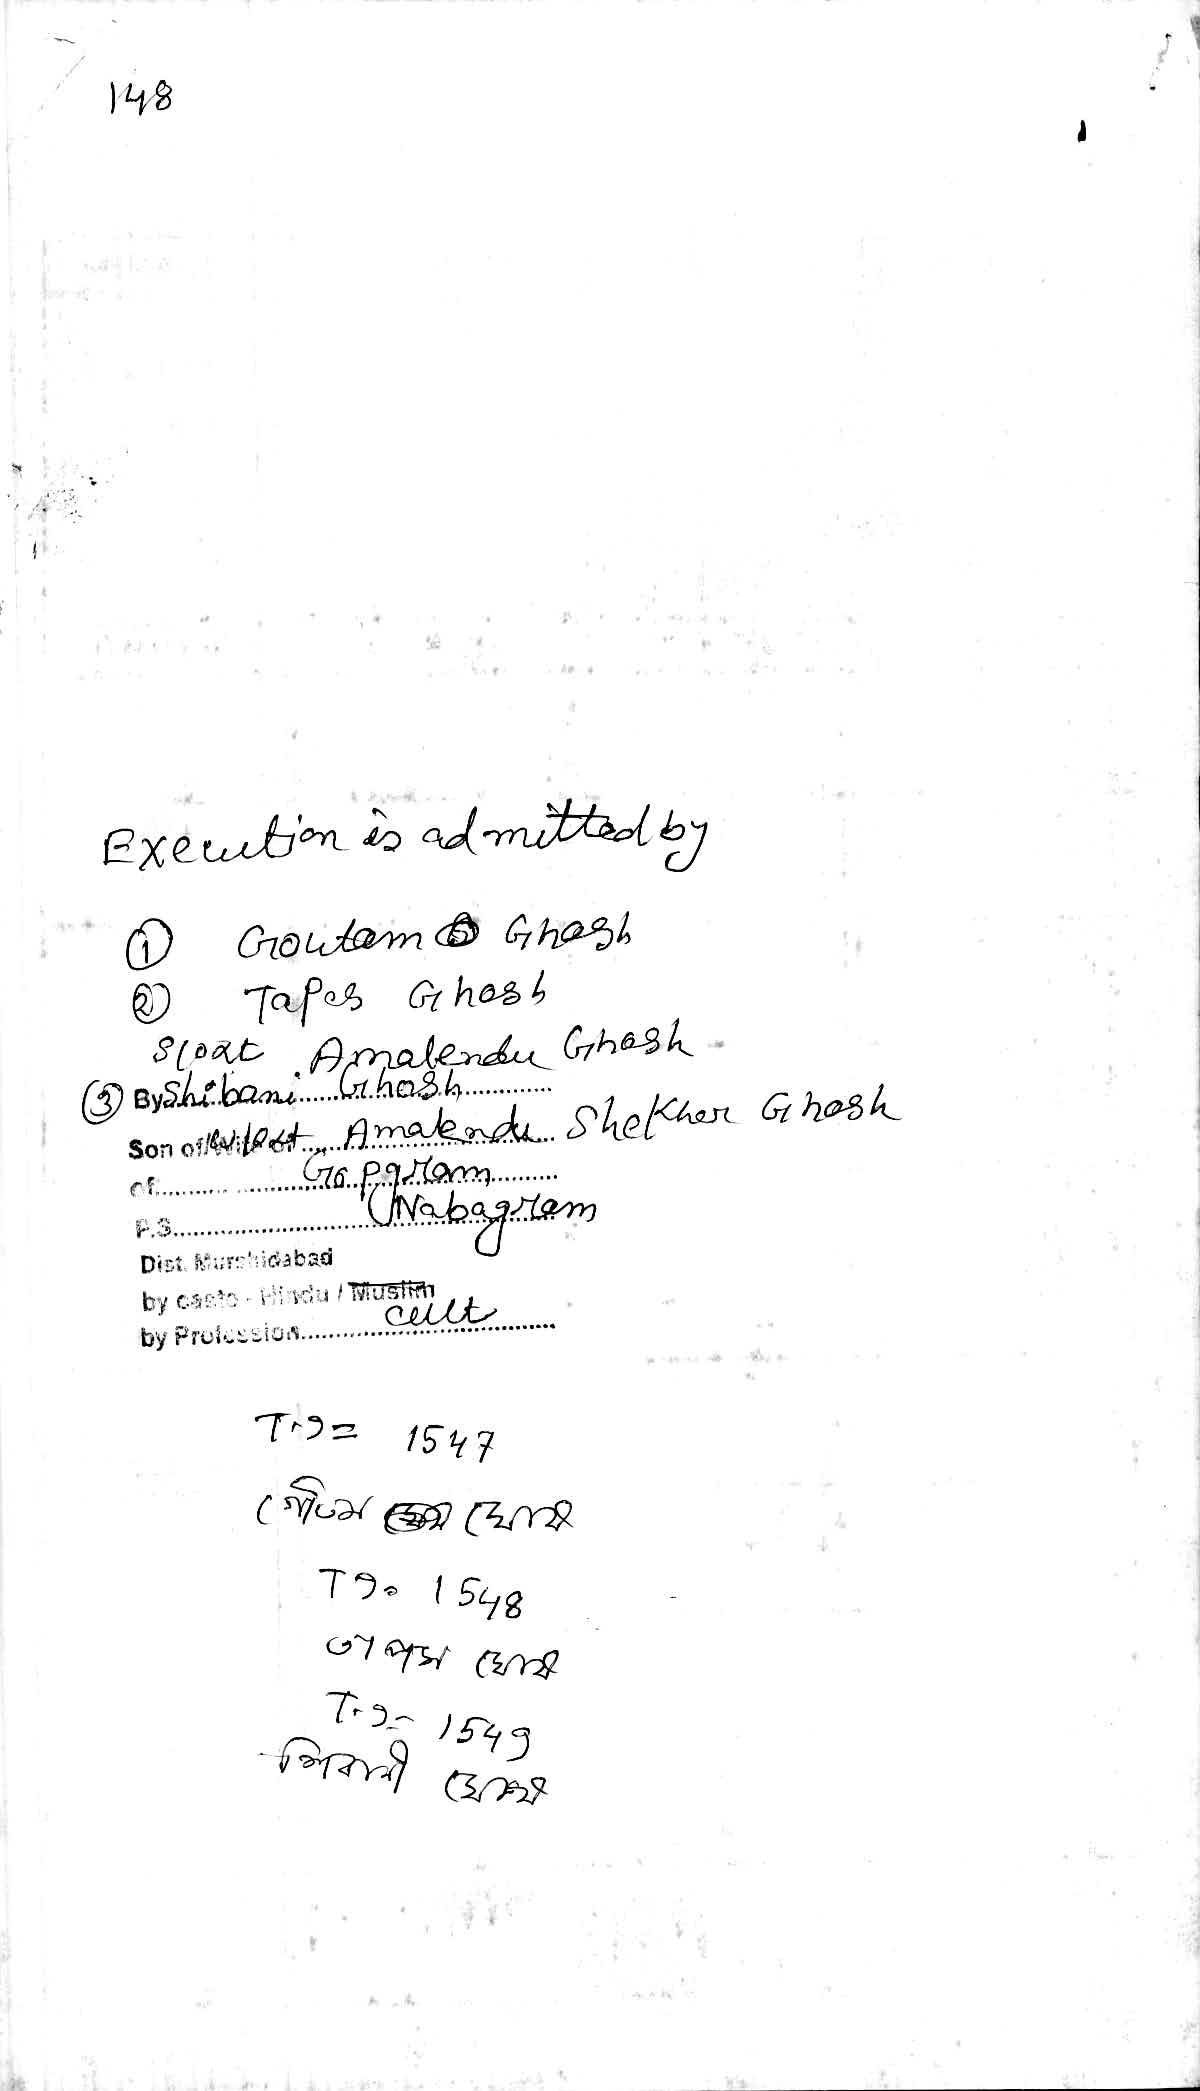 148
Execution is admitted by
① Goutam Ghosh
② Tapas Ghosh
S/o Lt Amalendu Ghosh
③ By Shibani Ghosh
Son of/Wife of W/o Lt Amalendu Shekher Ghosh
of Gopgram
P.S. Nabagram
Dist. Murshidabad
by caste - Hindu / Muslim
by Profession cult
1547
গৌতম ঘোষ
1548
তাপস ঘোষ
1549
শিবানী ঘোষ